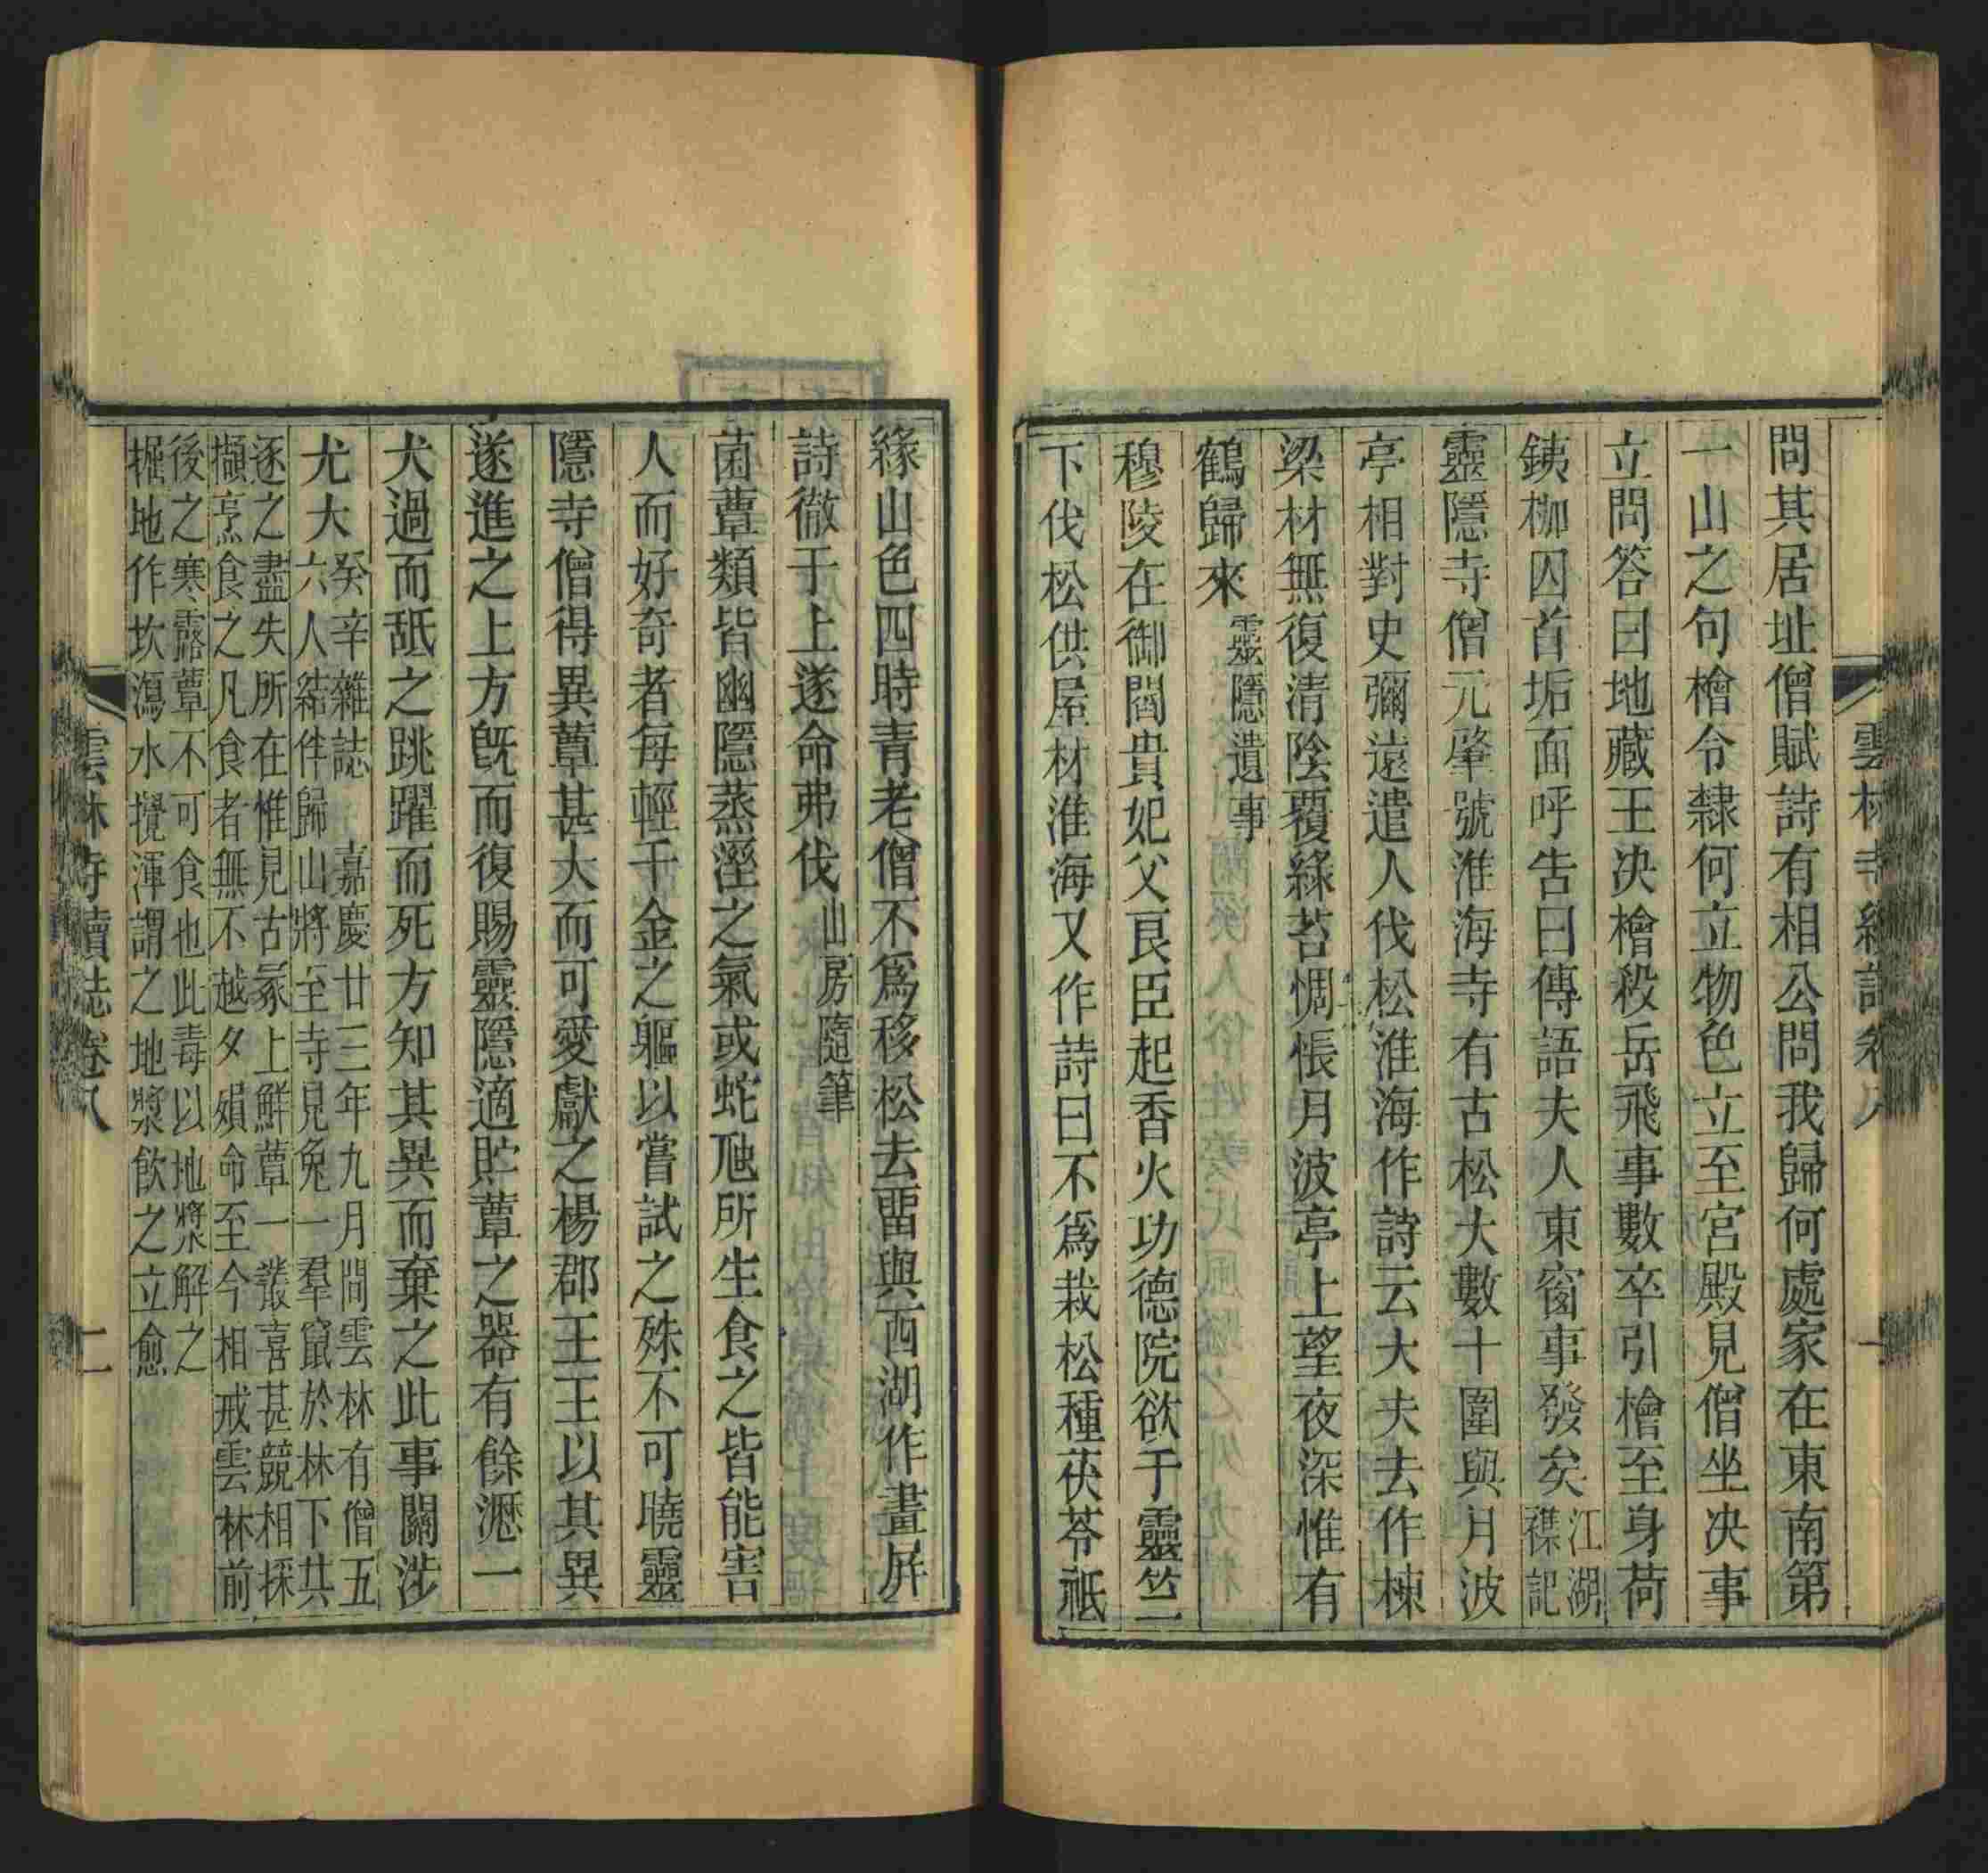 問其居址僧賦詩有相公問我歸何處家在東南第
一山之句檜令隸何立物色立至宮殿見僧坐决事
立問答曰地藏王决檜殺岳飛事數卒引檜至身荷
銕枷囚首垢面呼告曰傳語夫人東窗事發矣江湖
襍記
靈隱寺僧元肇號淮海寺有古松大數十圍與月波
亭相對史彌遠遣人伐松淮海作詩云大夫去作棟
梁材無復清陰覆綠苔惆悵月波亭上望夜深惟有
鶴歸來靈隱遺事
穆陵在御閻貴妃父良臣起香火功德院欲于靈竺
下伐松供屋材淮海又作詩曰不爲栽松種茯苓祗
緣山色四時青老僧不爲移松去畱與西湖作畫屏
詩徹于上遂命弗伐山房隨筆
菌蕈類皆幽隱蒸溼之氣或蛇虺所生食之皆能害
人而好奇者每輕千金之軀以嘗試之殊不可曉靈
隱寺僧得異蕈甚大而可愛獻之楊郡王王以其異
遂進之上方旣而復賜靈隱適貯蕈之器有餘瀝一
犬過而舐之跳躍而死方知其異而棄之此事關涉
尤大癸辛雜誌 嘉慶廿三年九月間雲林有僧五
六人結伴歸山將至寺見兔一羣竄於林下共
逐之盡失所在惟見古冢上鮮蕈一叢喜甚競相採
擷烹食之凡食者無不越夕殞命至今相戒雲林前
後之寒露蕈不可食也此毒以地漿解之
掘地作坎瀉水攪渾謂之地漿飲之立愈
雲林寺續誌卷八
二